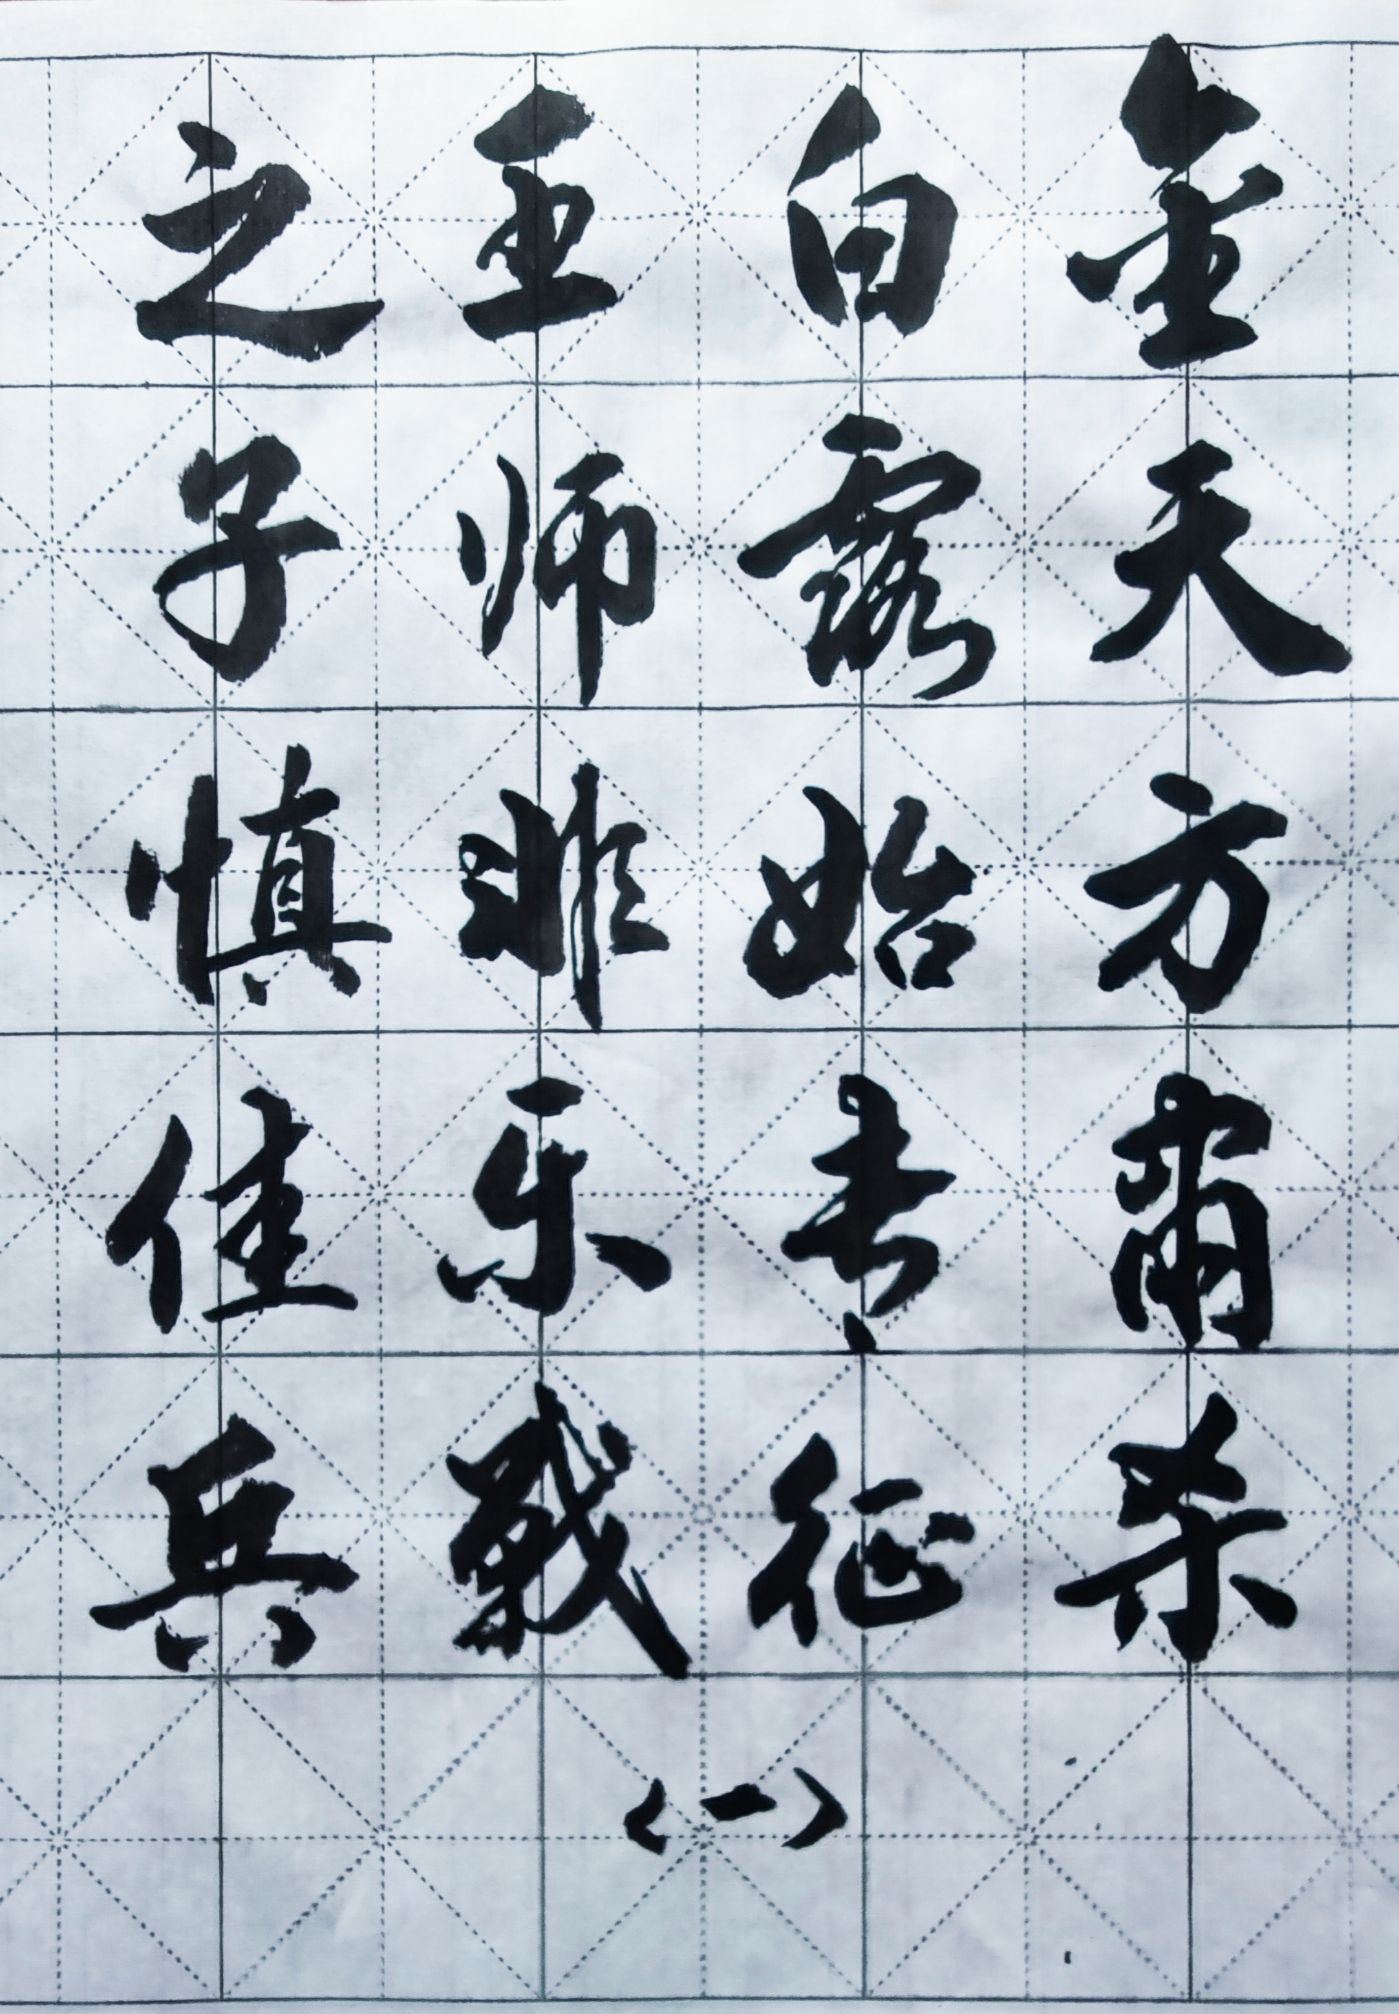 金天方肃杀
白露始专征
王师非乐战
之子慎佳兵
(一)